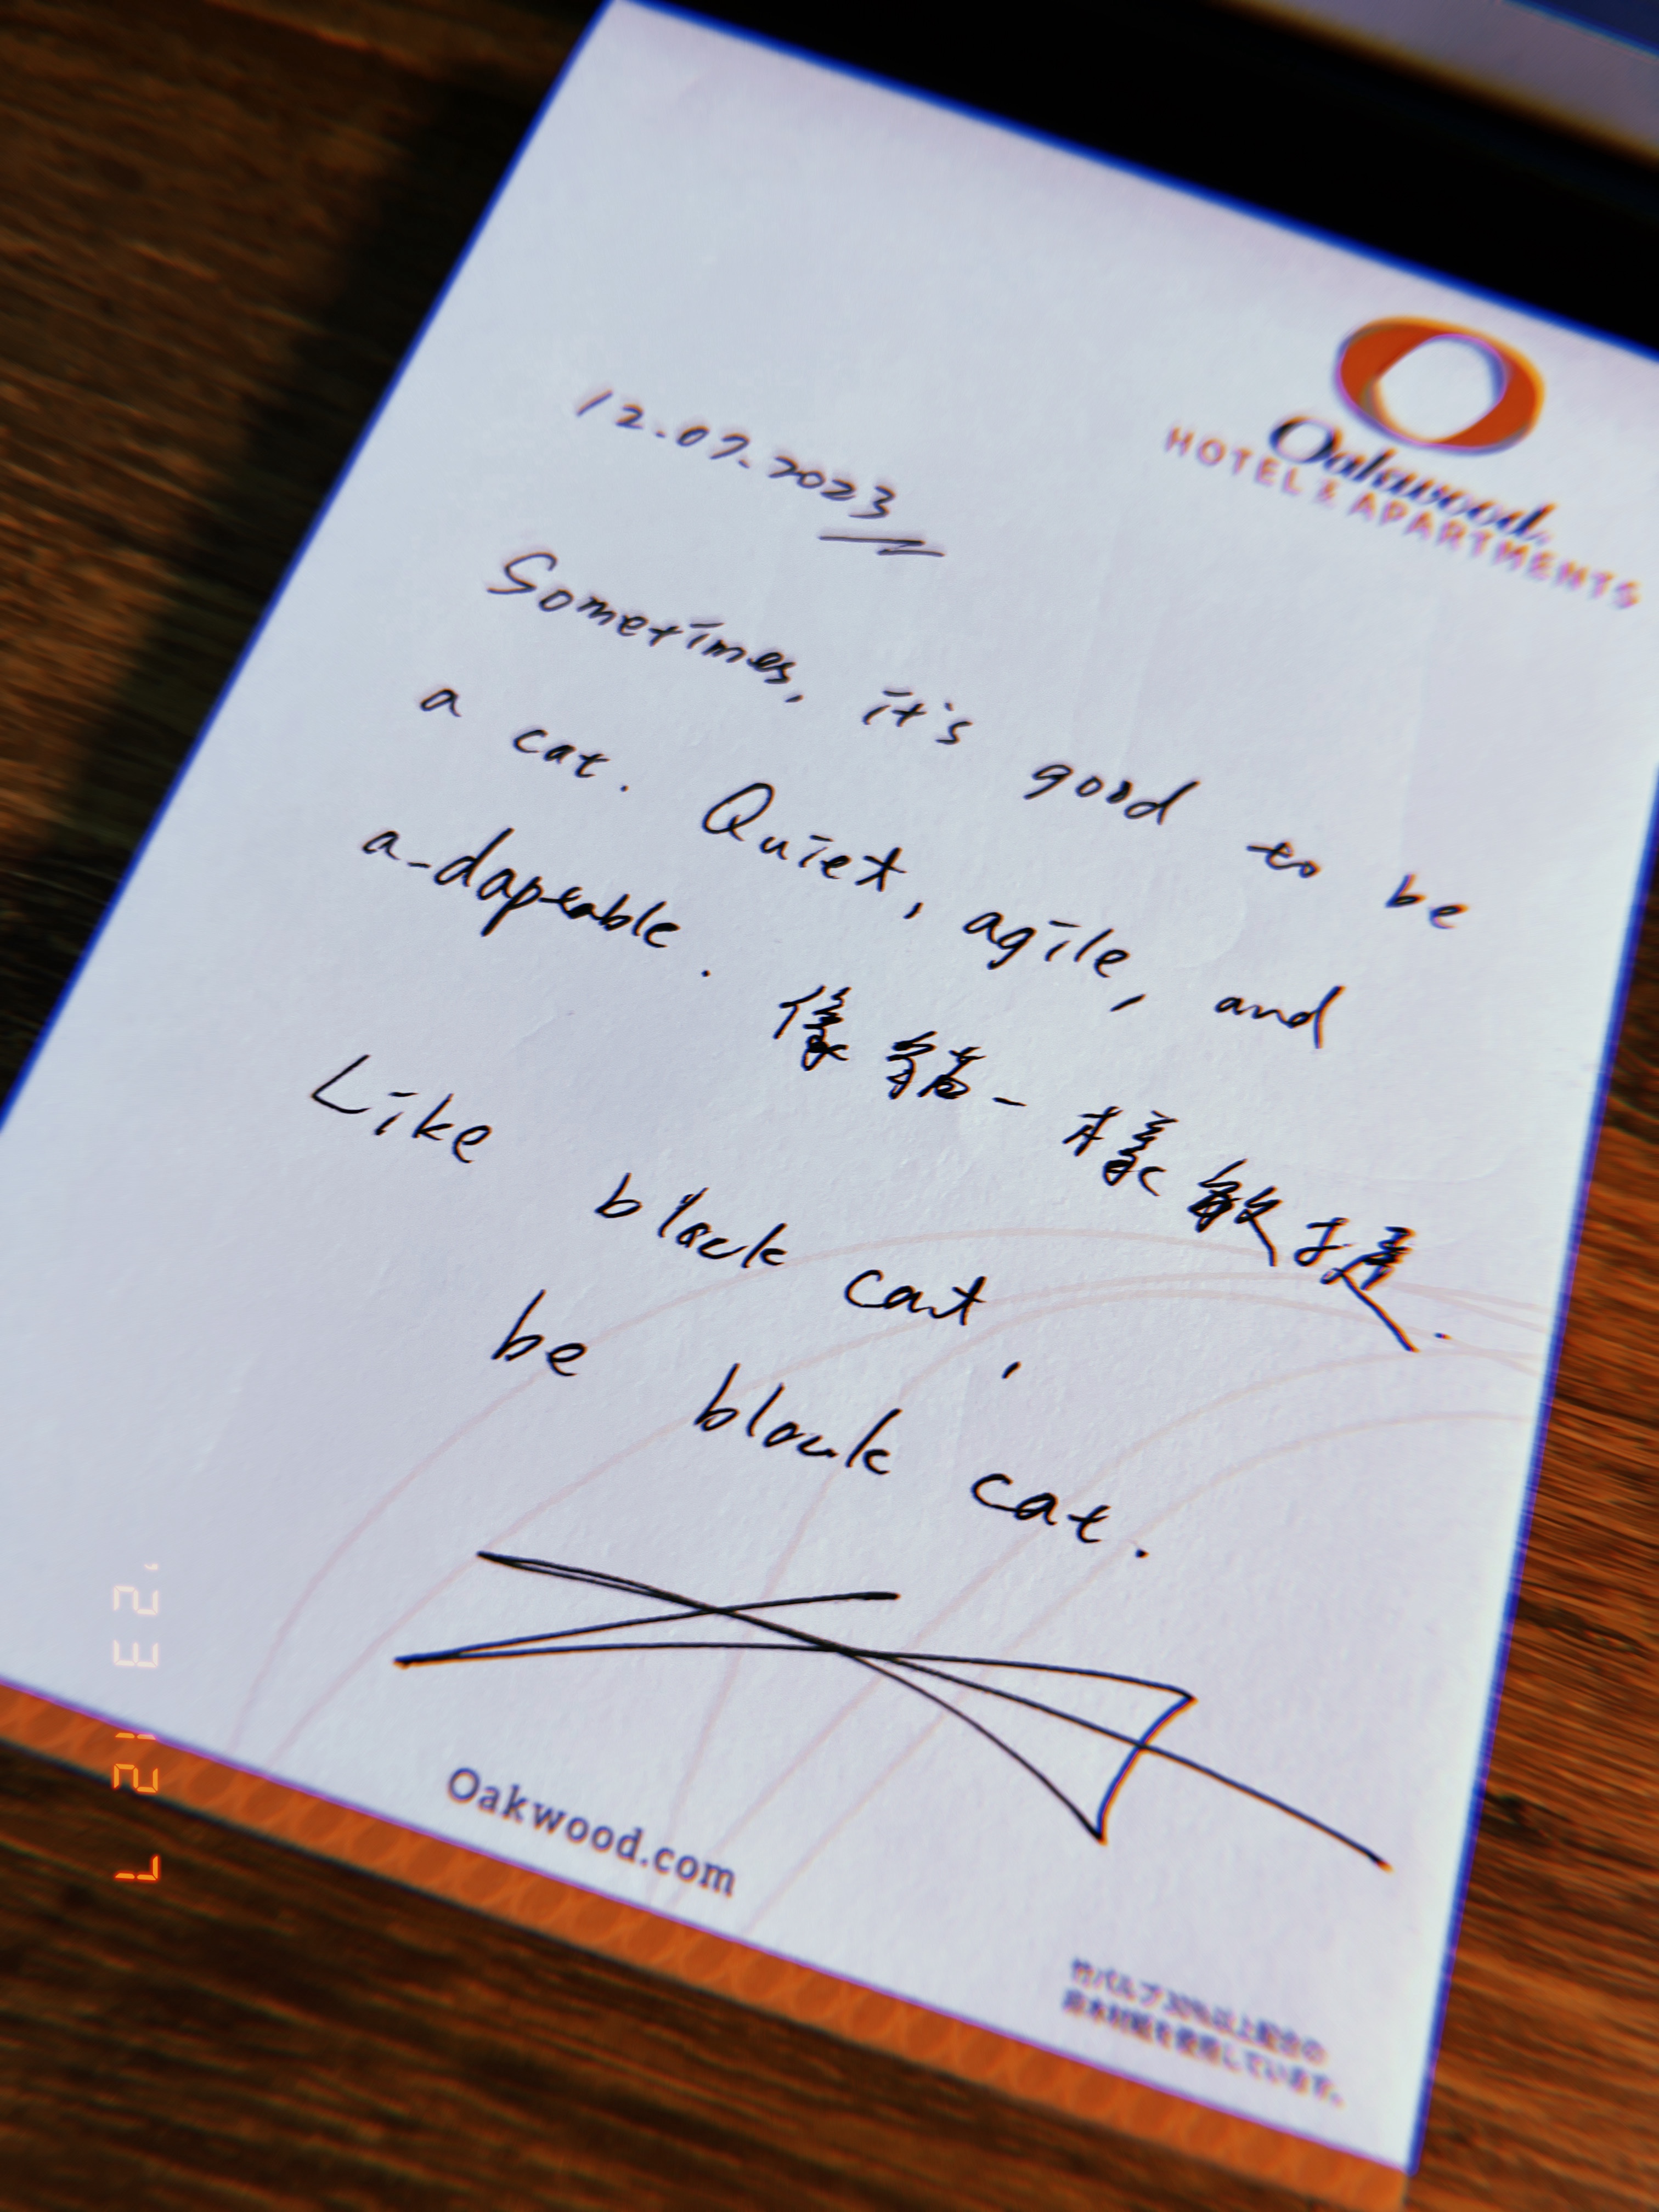 Oakwood.
HOTEL & APARTMENTS
12.07.2023
Sometimes, it's good to be
a cat. Quiet, agile, and
a-daptable. 像貓一樣敏捷.
Like black cat,
be black cat.
Oakwood.com
竹パルプ30%以上配合の
非木材紙を使用しています。
'23 12 7